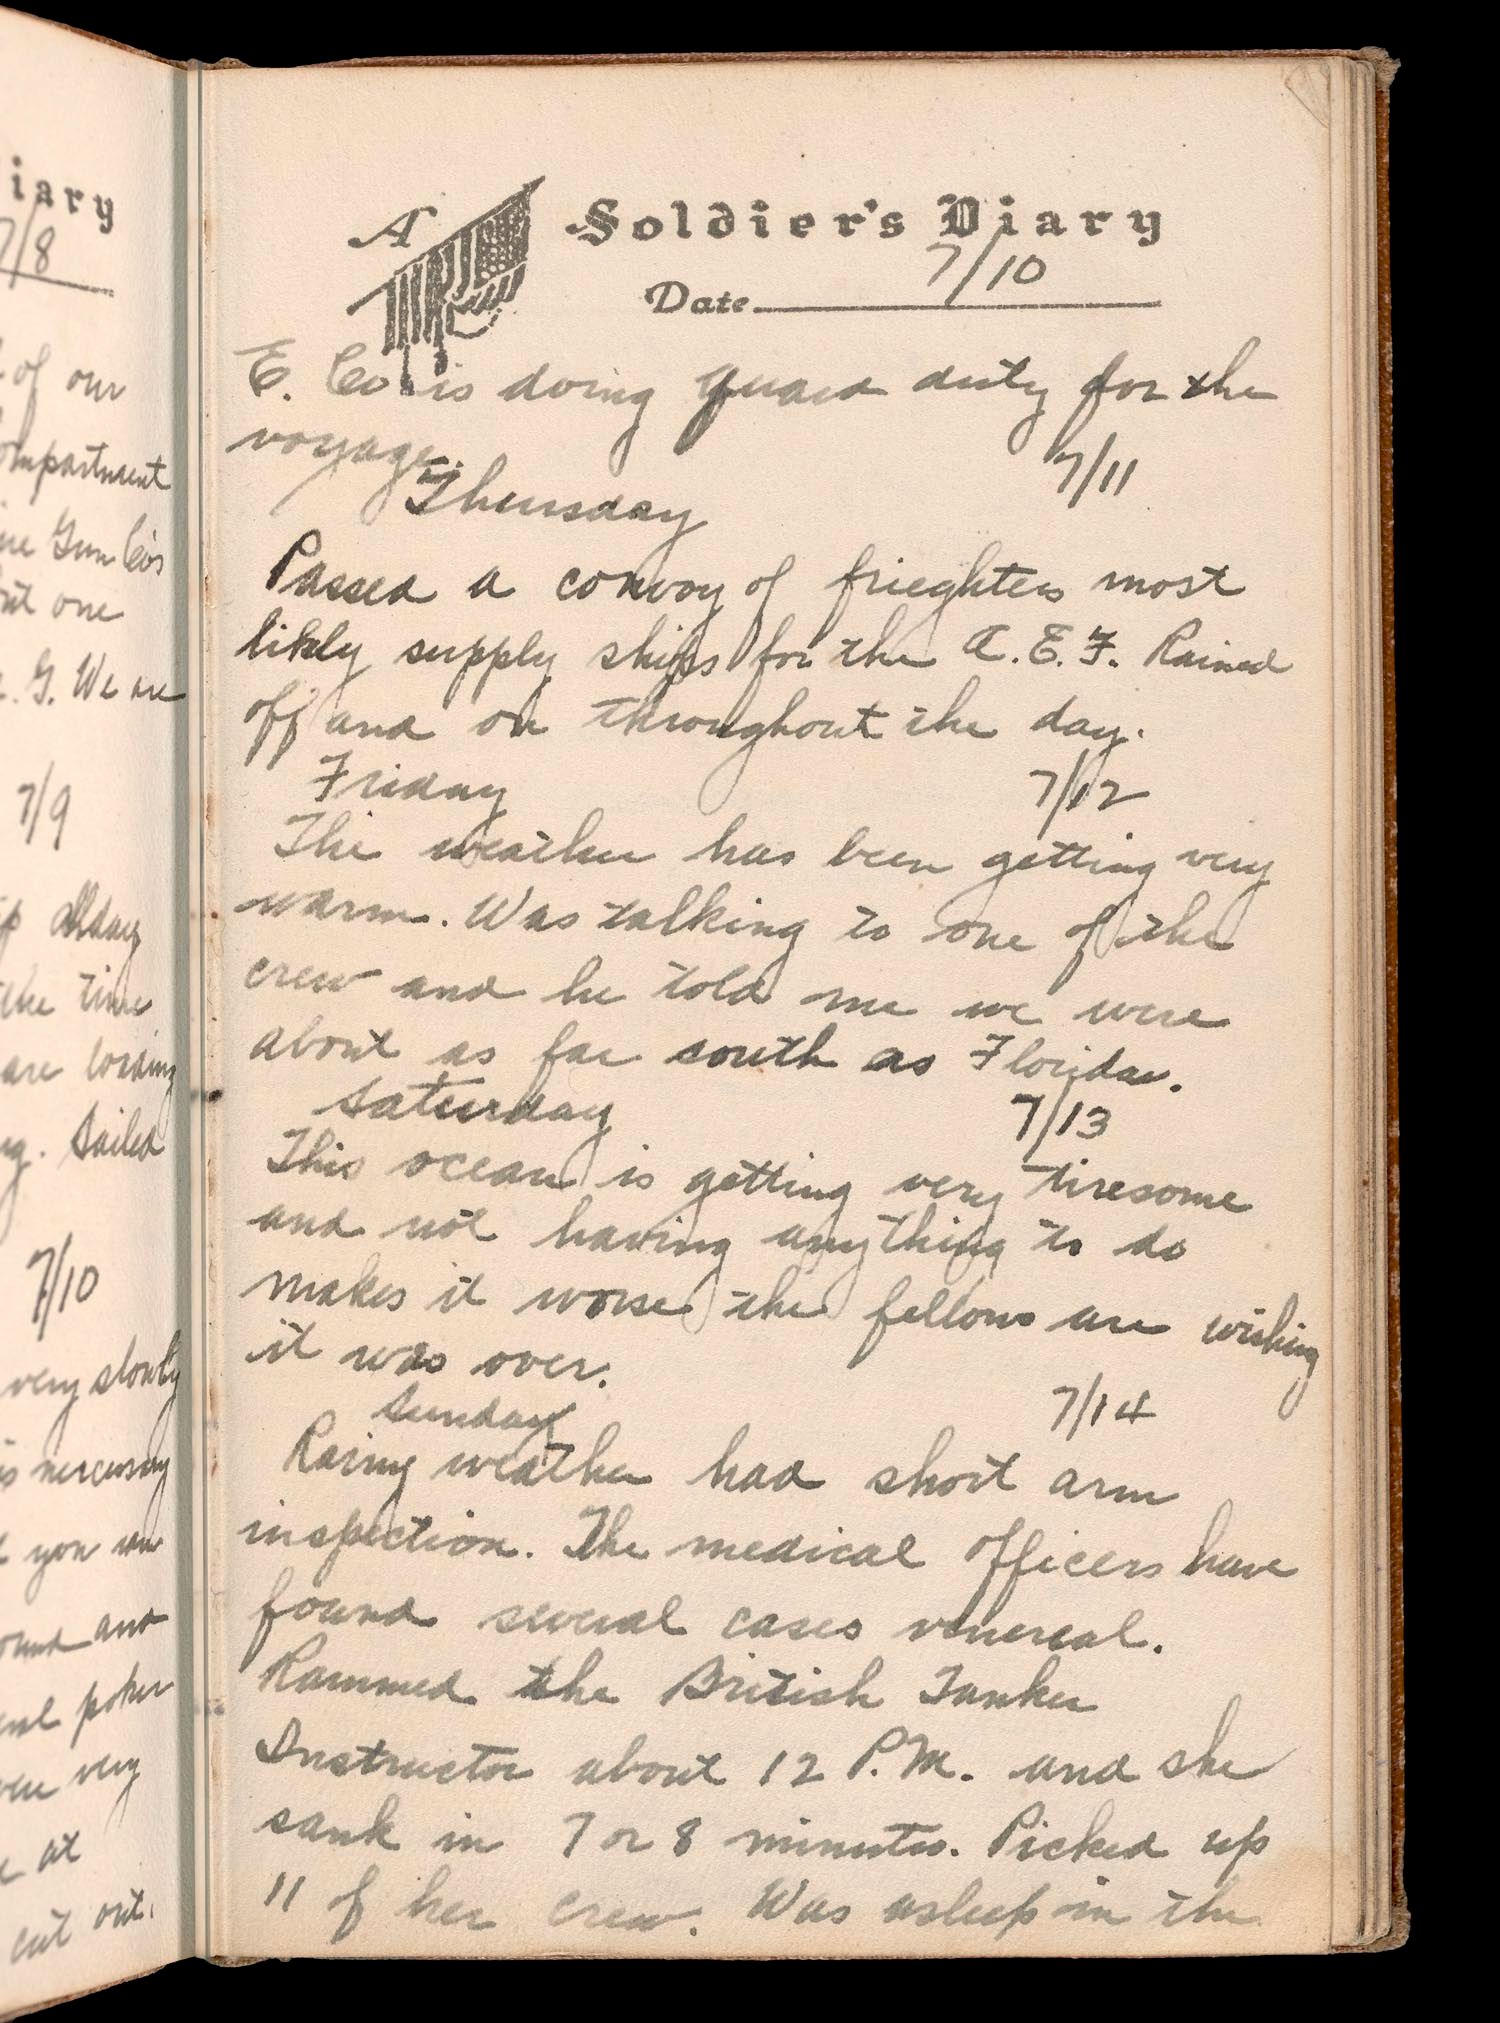 iary
7/8
of our
ompartment
ne Gun Co's
ut one
. G. We are
7/9
p all day
the time
are loading
g. Sailed
7/10
very slowly
is nercessary
you
ound and
poker
very
at
cut out.
A Soldier's Diary
Date 7/10
E. Co. is doing guard duty for the
voyage.
Thursday 7/11
Passed a convoy of frieghters most
likly supply ships for the A.E.F. Rained
off and on throughout the day.
Friday 7/12
The weather has been getting very
warm. Was talking to one of the
crew and he told me we were
about as far south as Florida.
Saturday 7/13
This ocean is getting very tiresome
and not having anything to do
makes it worse the fellows are wishing
it was over.
Sunday 7/14
Rainy weather had short arm
inspection. The medical officers have
found several cases venereal.
Rammed the British Tanker
Instructor about 12 P.M. and she
sank in 7 or 8 minutes. Picked up
11 of her crew. Was asleep in the